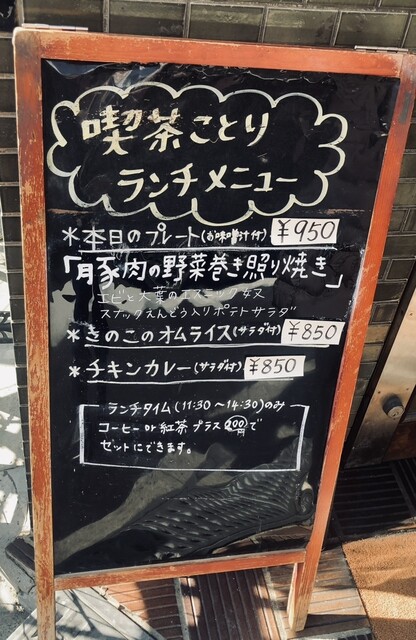 喫茶ことり
ランチメニュー
*本日のプレート(お味噌汁付) ¥950
「豚肉の野菜巻き照り焼き」
エビと大葉のエスニック
スナックえんどう入りポテトサラダ
*きのこのオムライス(サラダ付) ¥850
*チキンカレー(サラダ付) ¥850
ランチタイム(11:30~14:30)のみ
コーヒー or 紅茶 プラス200円で
セットにできます。